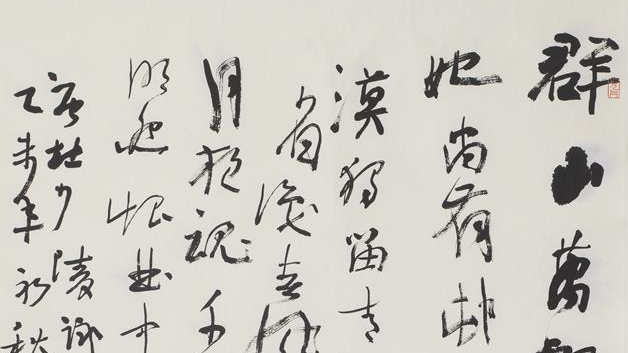 群山萬
妃尚有村
漠獨留青
省識春風
月夜魂千
明怨恨曲中
唐杜少陵詠
乙未年初秋